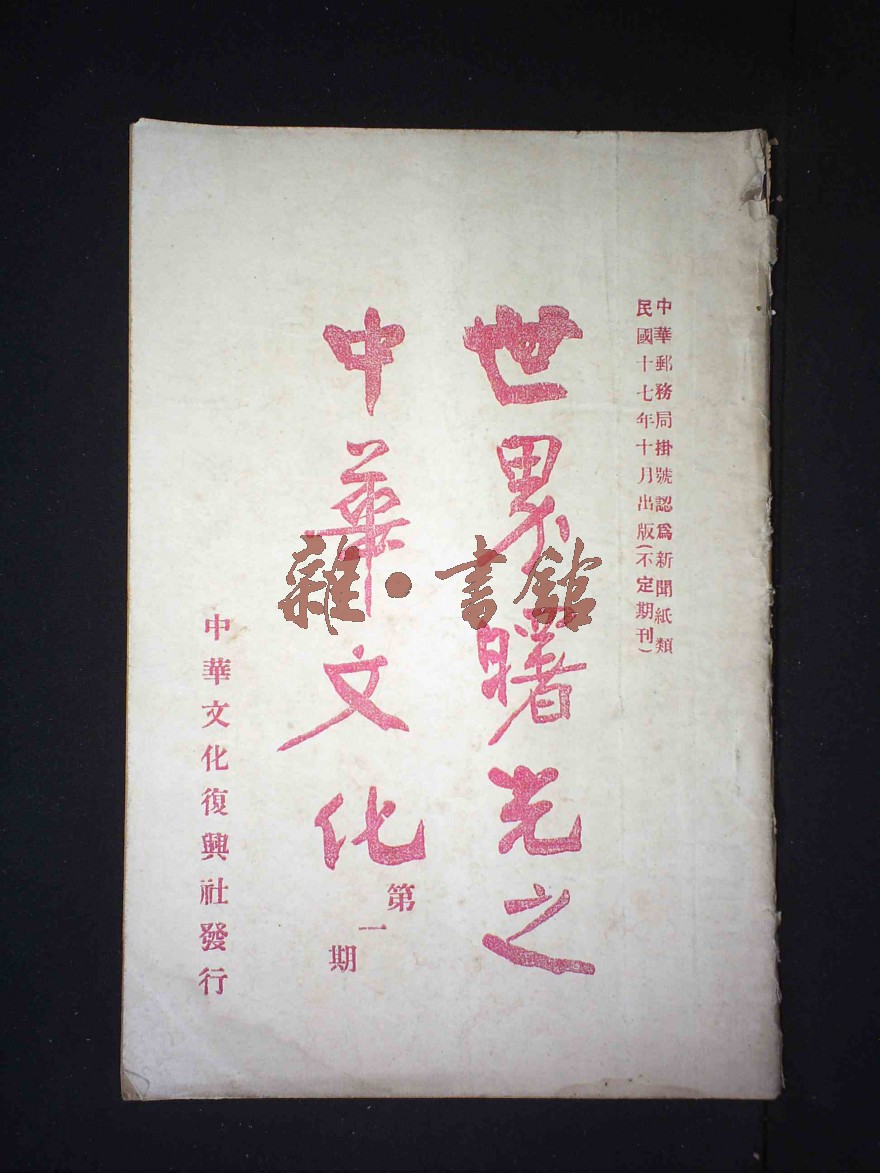 中華郵務局掛號認爲新聞紙類
民國十七年十月出版(不定期刊)
世界曙光之
中華文化
第一期
中華文化復興社發行
雜·書館